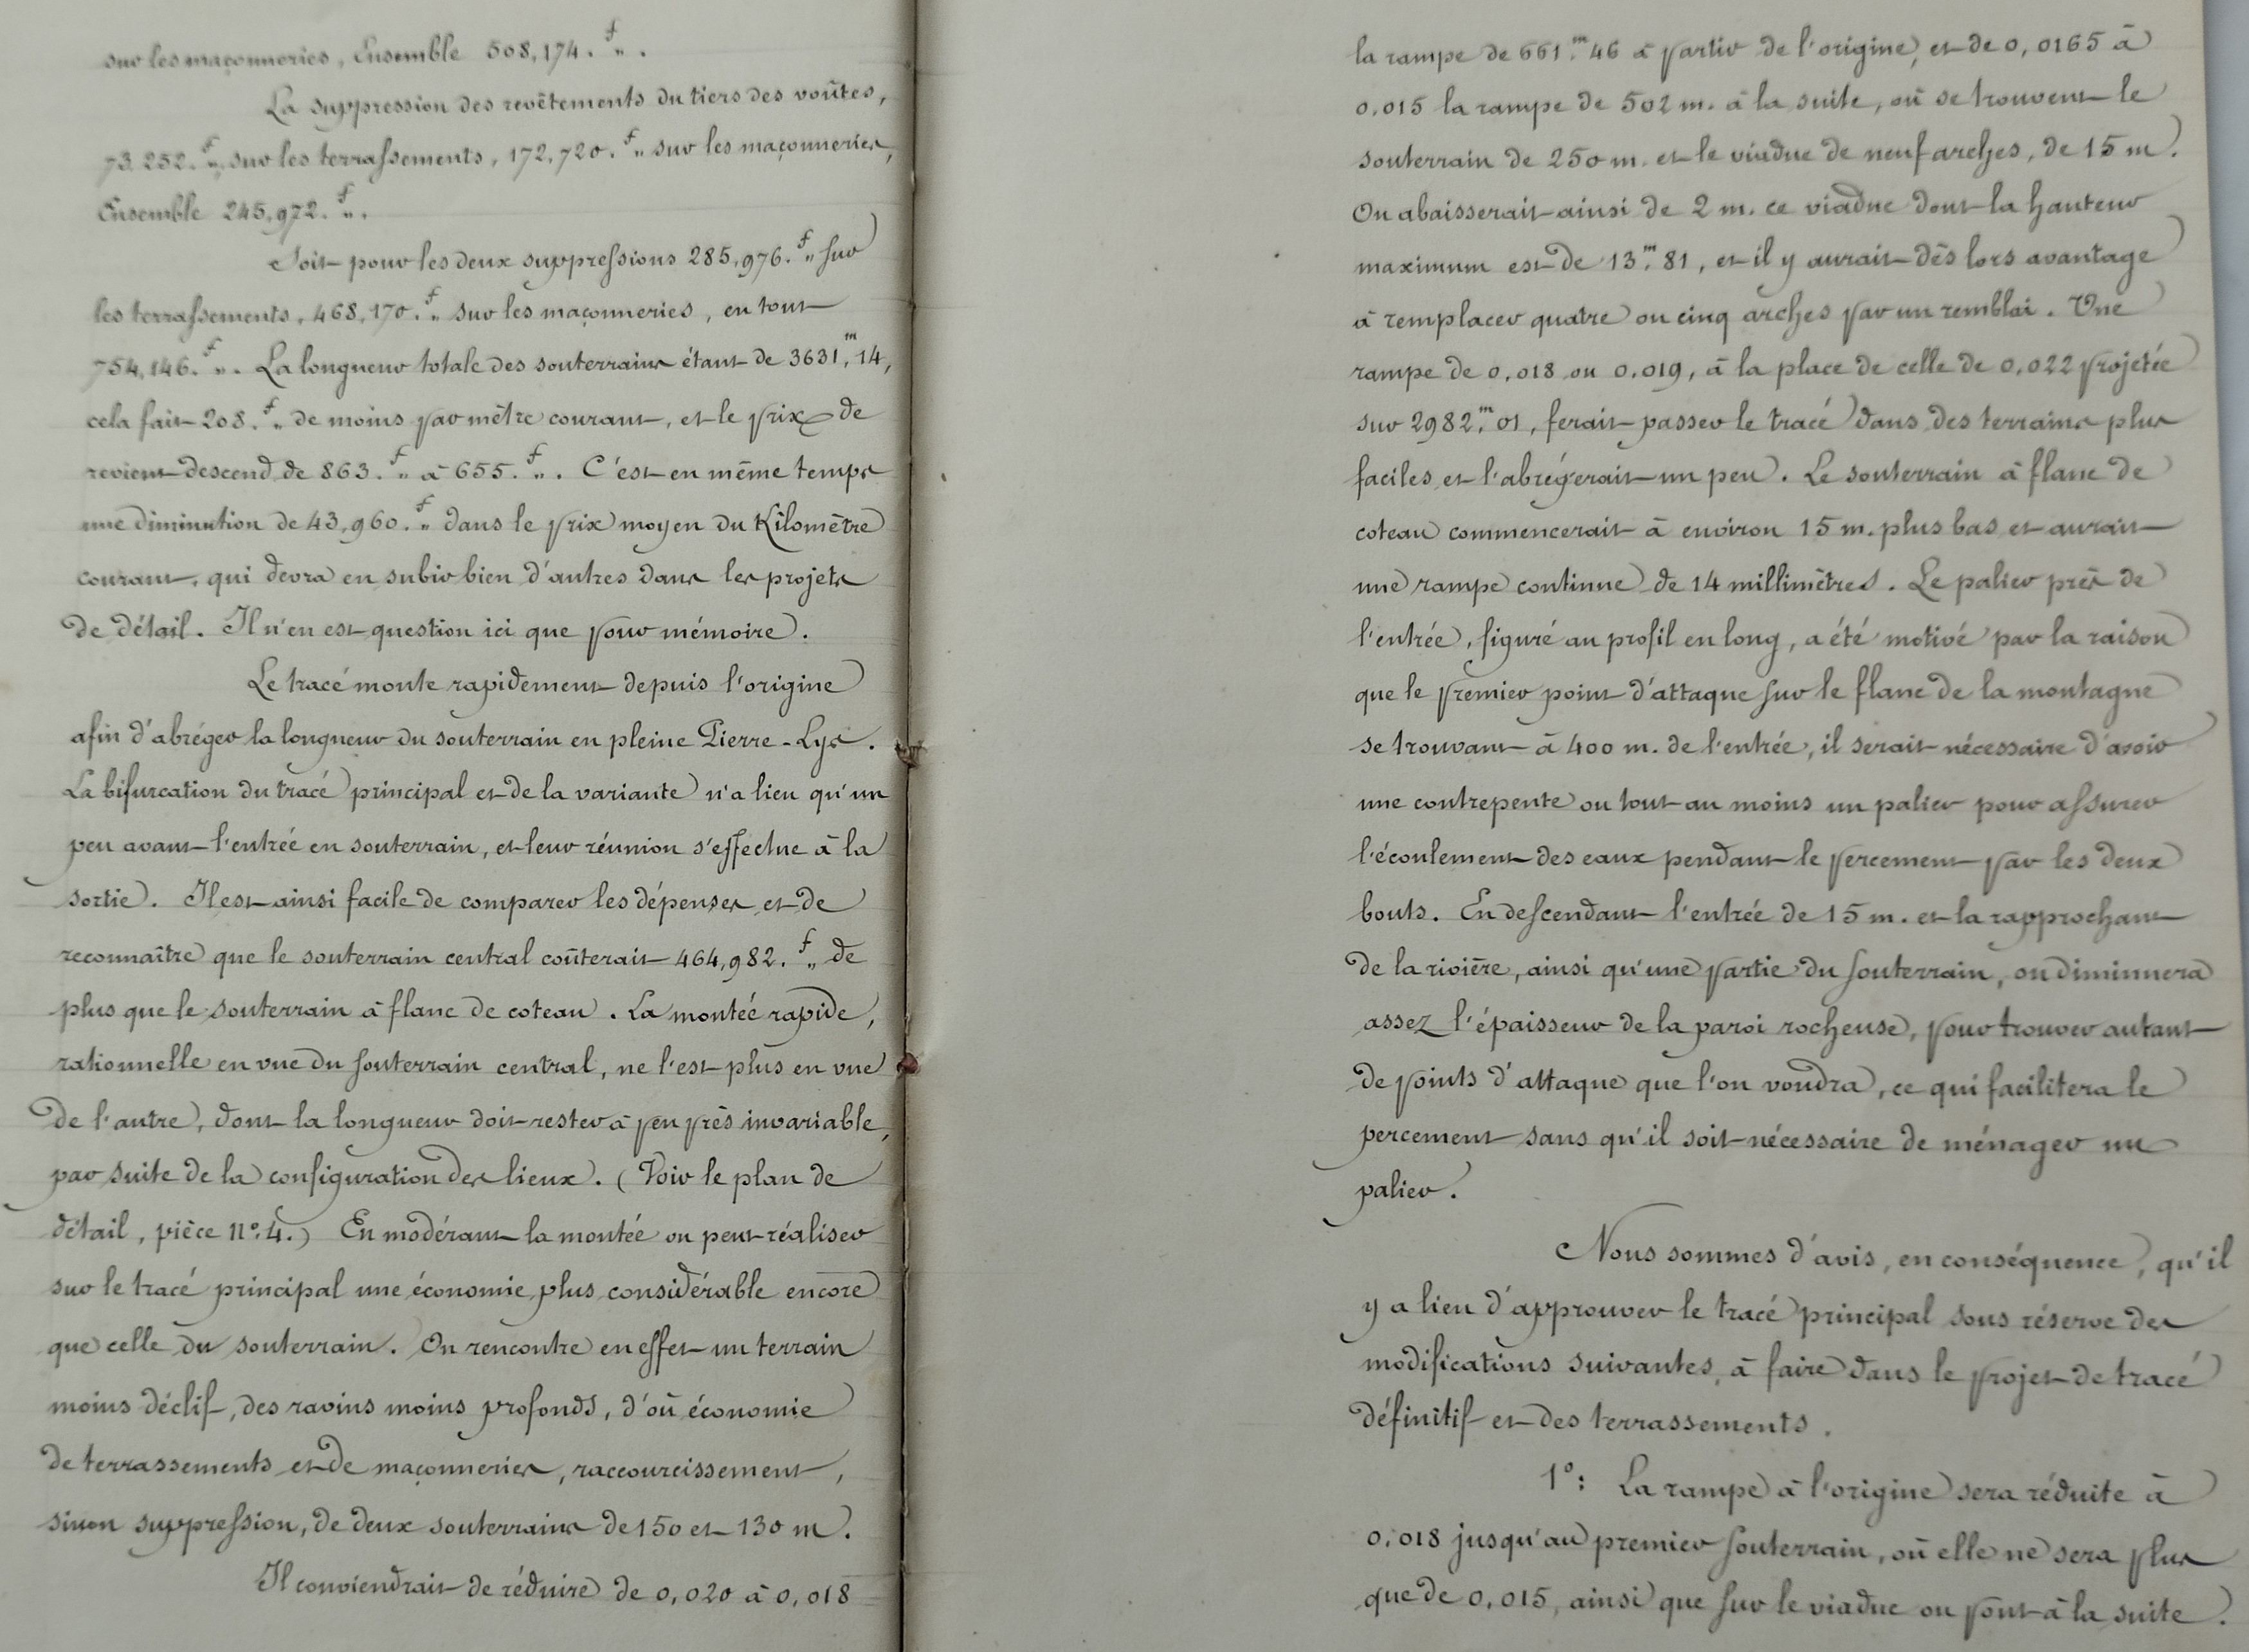 sur les maçonneries, Ensemble 508,174.f„.
La suppression des revêtements du tiers des voûtes,
73.252.f„ sur les terrassements, 172,720.f„ sur les maçonneries,
Ensemble 245,972.f„.
Soit pour les deux suppressions 285,976.f„ sur
les terrassements, 468,170.f„ sur les maçonneries, en tout
754,146.f„. La longueur totale des souterrains étant de 3631,m14,
cela fait 208.f„ de moins par mètre courant, et le prix de
revient descend de 863.f„ à 655.f„. C'est en même temps
une diminution de 43,960.f„ dans le prix moyen du Kilomètre
courant, qui devra en subir bien d'autres dans les projets
de détail. Il n'en est question ici que pour mémoire.
Le tracé monte rapidement depuis l'origine
afin d'abréger la longueur du souterrain en pleine Pierre-Lys.
La bifurcation du tracé principal et de la variante n'a lieu qu'un
peu avant l'entrée en souterrain, et leur réunion s'effectue à la
sortie. Il est ainsi facile de comparer les dépenses et de
reconnaître que le souterrain central coûterait 464,982.f„ de
plus que le souterrain à flanc de coteau. La montée rapide,
rationnelle en vue du souterrain central, ne l'est plus en vue
de l'autre, dont la longueur doit rester à peu près invariable,
par suite de la configuration des lieux. (Voir le plan de
détail, pièce n°:4.) En modérant la montée on peut réaliser
sur le tracé principal une économie plus considérable encore
que celle du souterrain. On rencontre en effet un terrain
moins déclif, des ravins moins profonds, d'où économie
de terrassements et de maçonneries, raccourcissement,
sinon suppression, de deux souterrains de 150 et 130 m.
Il conviendrait de réduire de 0,020 à 0,018
la rampe de 661,m46 à partir de l'origine, et de 0,0165 à
0.015 la rampe de 502 m. à la suite, où se trouvent le
souterrain de 250 m. et le viaduc de neuf arches, de 15 m.
On abaisserait ainsi de 2 m. ce viaduc dont la hauteur
maximum est de 13,m81, et il y aurait dès lors avantage
à remplacer quatre ou cinq arches par un remblai. Une
rampe de 0,018 ou 0.019, à la place de celle de 0,022 projetée
sur 2982,m01, ferait passer le tracé dans des terrains plus
faciles et l'abrégerait un peu. Le souterrain à flanc de
coteau commencerait à environ 15 m. plus bas et aurait
une rampe continue de 14 millimètres. Le palier près de
l'entrée, figuré au profil en long, a été motivé par la raison
que le premier point d'attaque sur le flanc de la montagne
se trouvant à 400 m. de l'entrée, il serait nécessaire d'avoir
une contrepente ou tout au moins un palier pour assurer
l'écoulement des eaux pendant le percement par les deux
bouts. En descendant l'entrée de 15 m. et la rapprochant
de la rivière, ainsi qu'une partie du souterrain, on diminuera
assez l'épaisseur de la paroi rocheuse, pour trouver autant
de points d'attaque que l'on voudra, ce qui facilitera le
percement sans qu'il soit nécessaire de ménager un
palier.
Nous sommes d'avis, en conséquence, qu'il
y a lieu d'approuver le tracé principal sous réserve des
modifications suivantes, à faire dans le projet de tracé
définitif et des terrassements.
1°: La rampe à l'origine sera réduite à
0,018 jusqu'au premier souterrain, où elle ne sera plus
que de 0,015, ainsi que sur le viaduc ou pont à la suite.